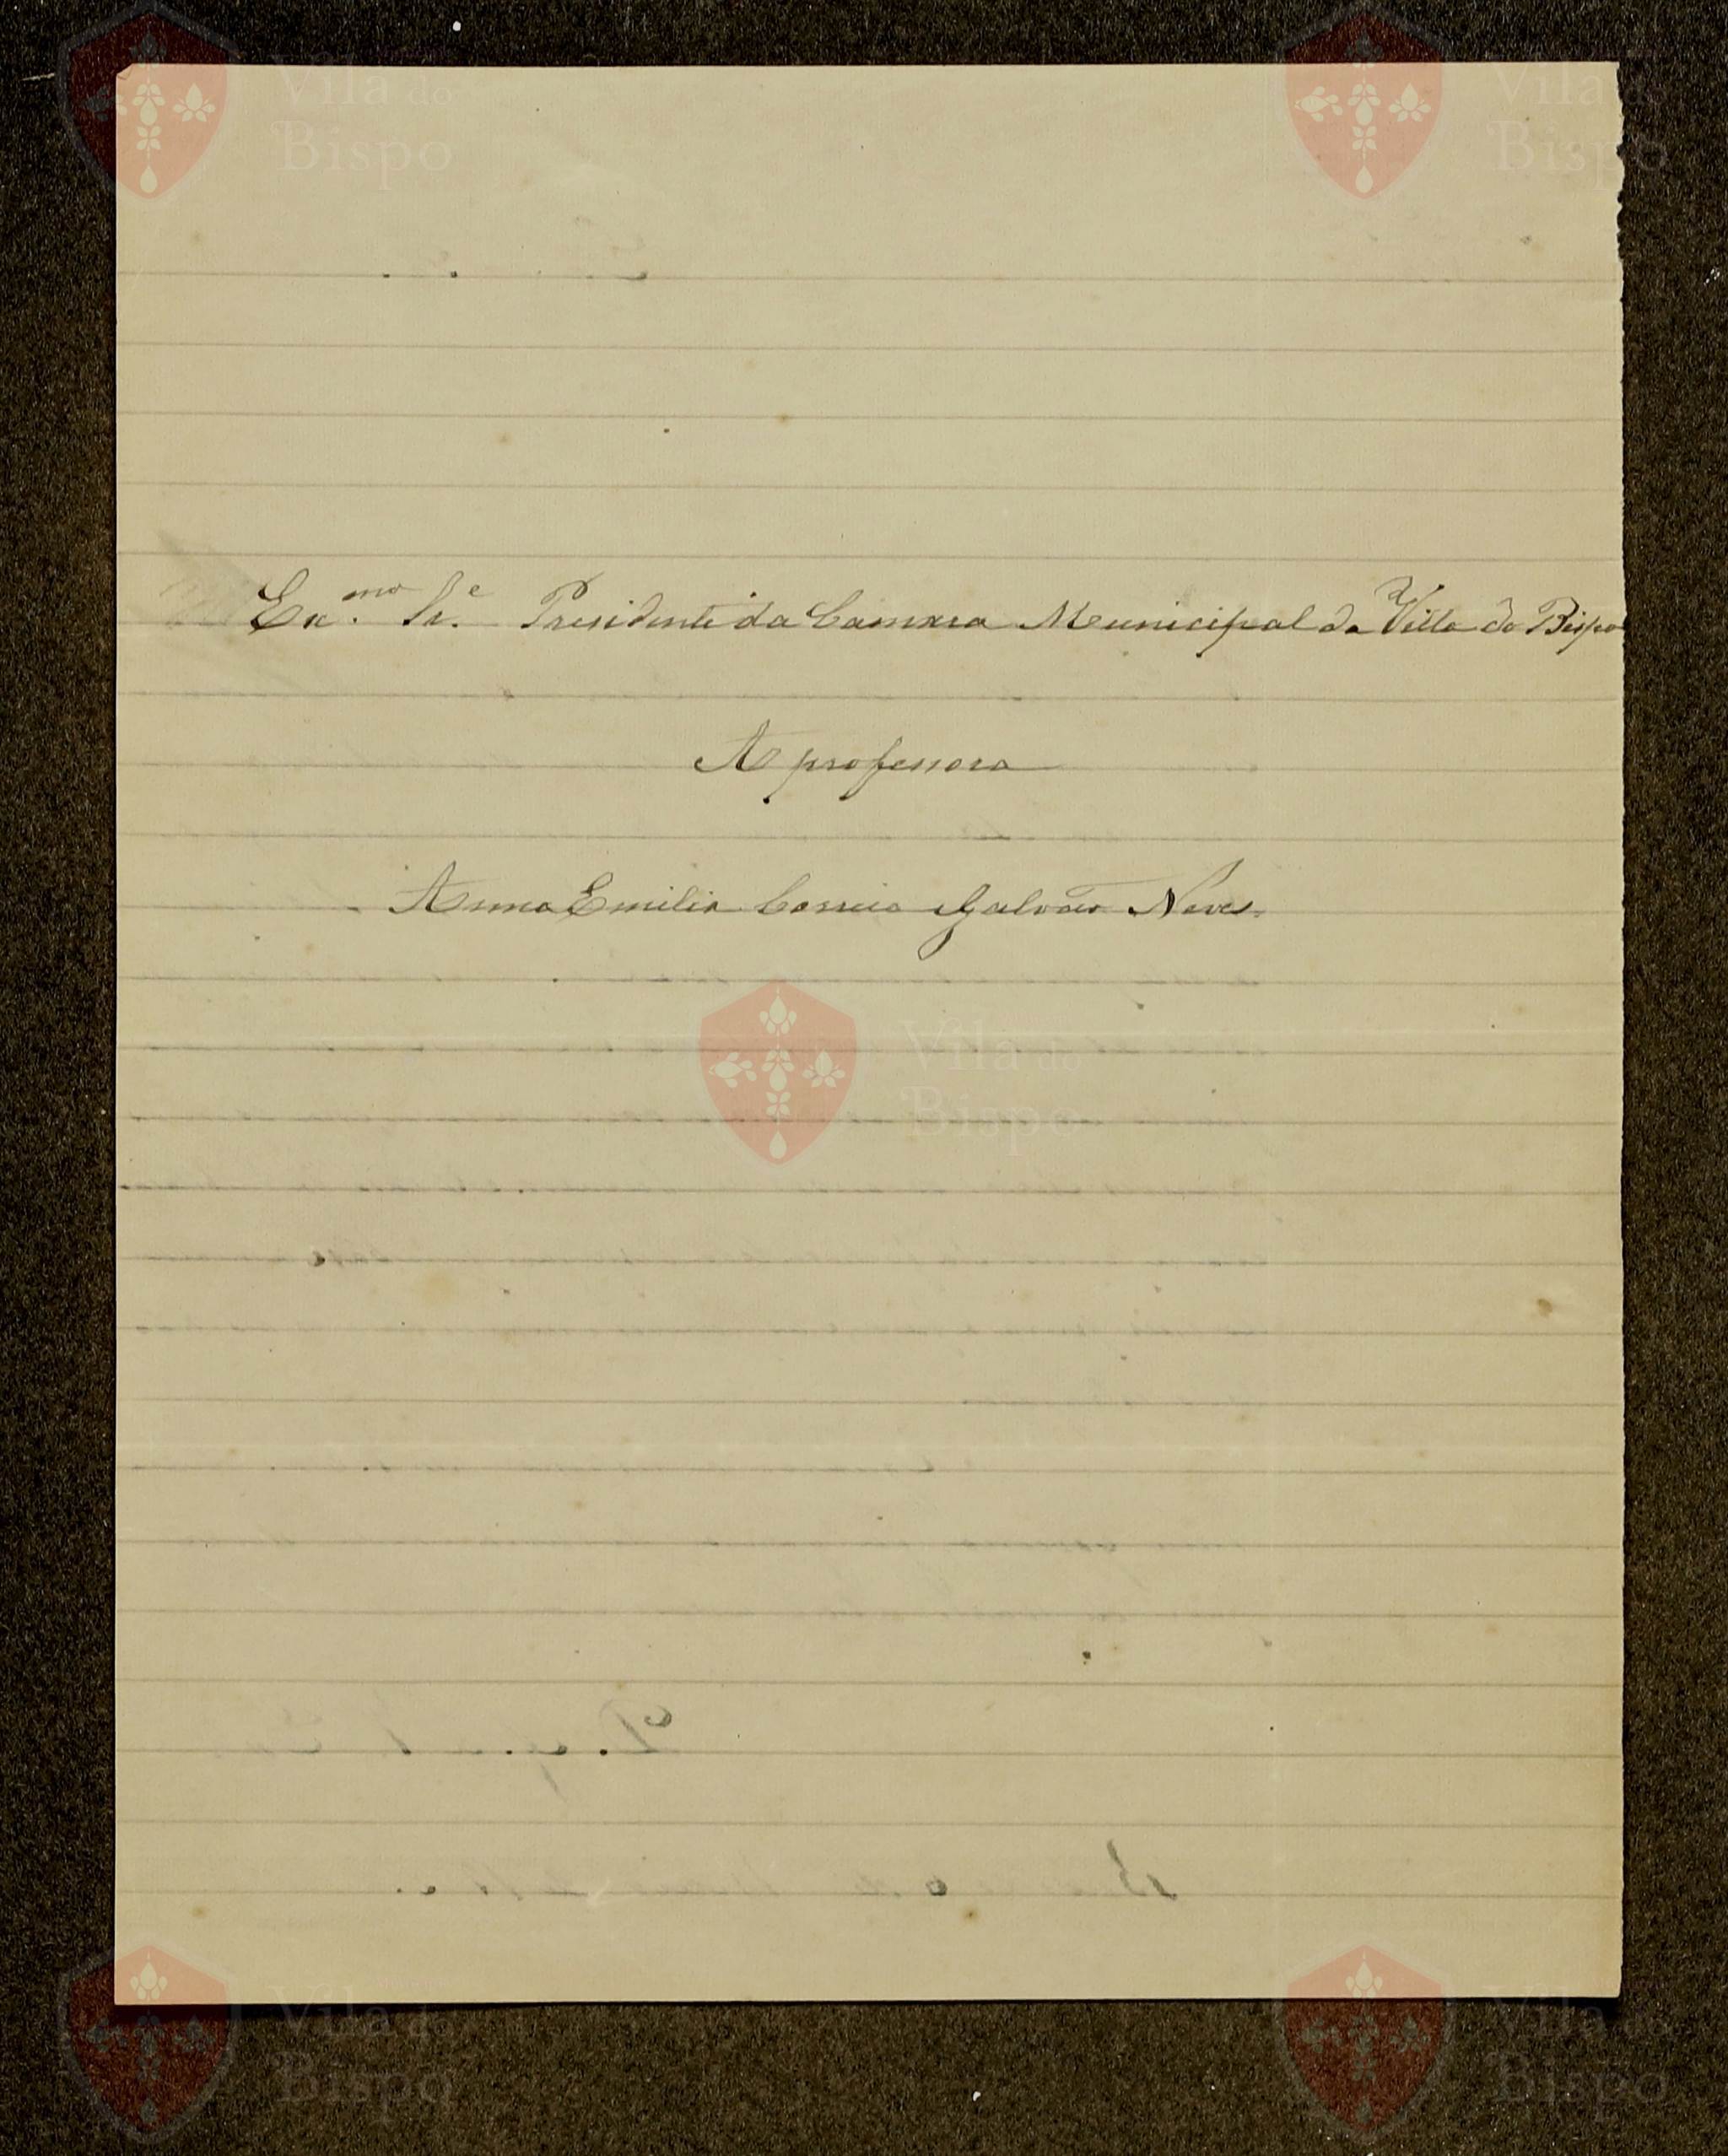 Vila do
Bispo
Vila do
Bispo
Exmo. Sr. Presidente da Camara Municipal da Villa do Bispo
A professora
Anna Emilia Correia Galvão Neves.
Vila do
Bispo
Vila do
Bispo
Vila do
Bispo